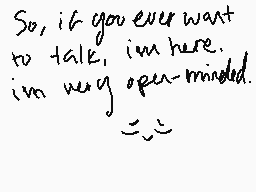 So, if you ever want
to talk, im here.
im very open-minded.